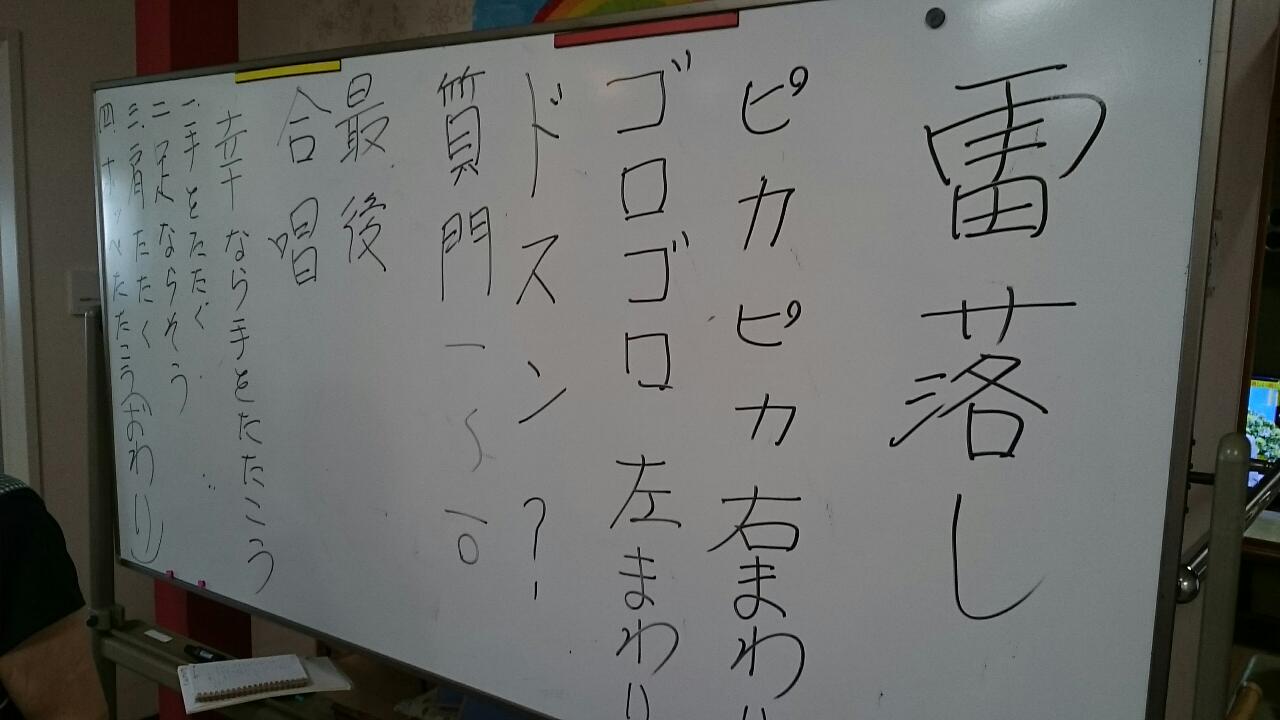 雷落し
ピカピカ 右まわり
ゴロゴロ 左まわり
ドスン ?
質門 一〜10
最後
合唱
幸なら手とたたこう
一.手とたたく
二 足ならそう
三.肩たたく
四.ホッペたたこう(おわり)